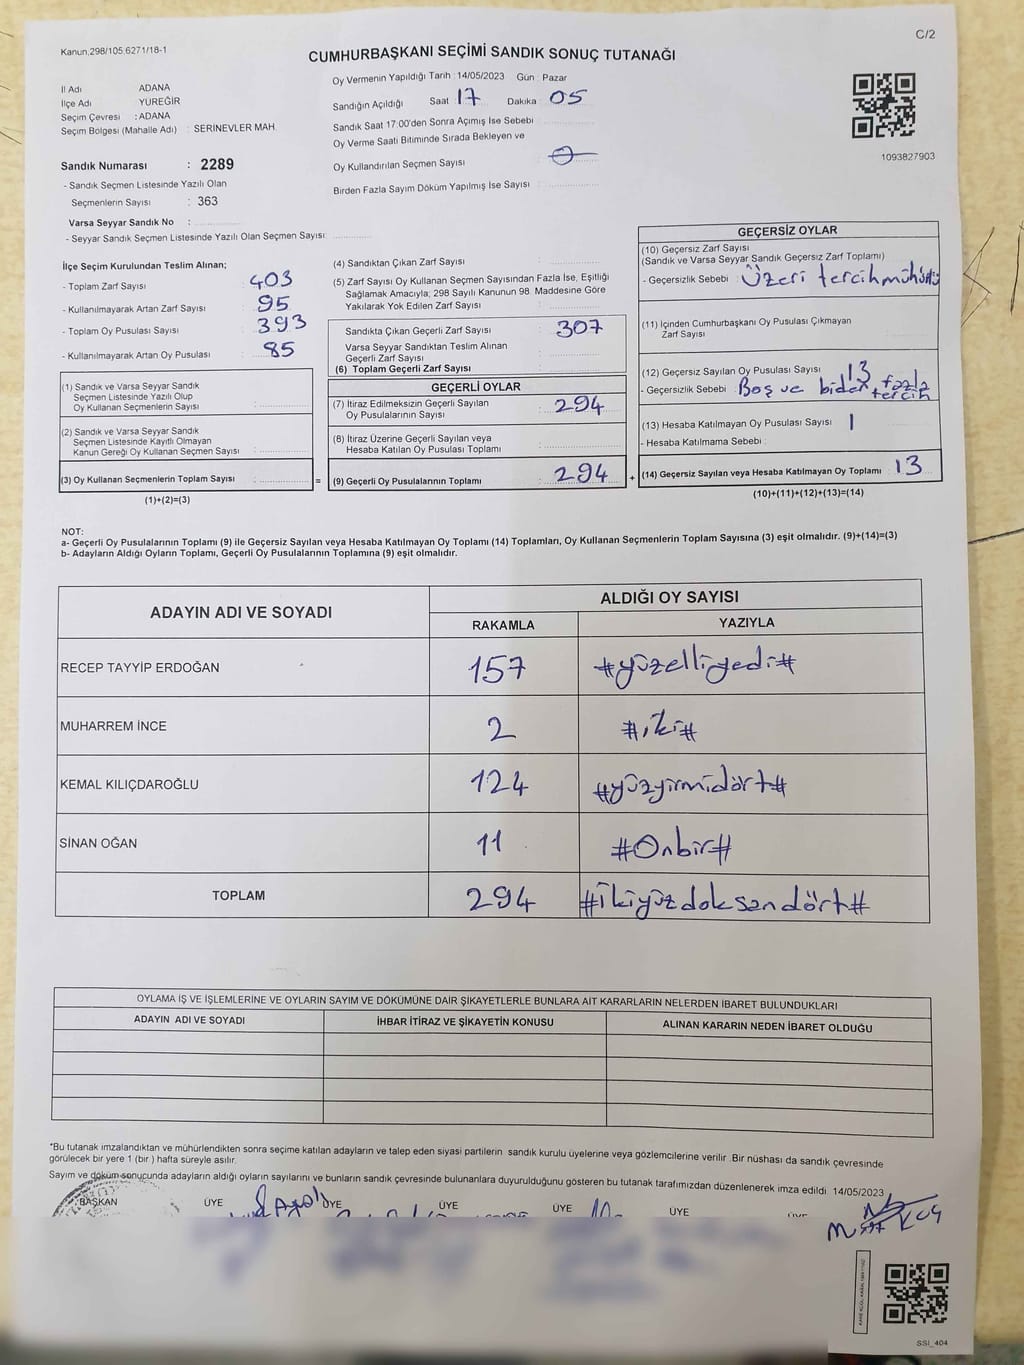 Kanun.298/105.6271/18-1
C/2
CUMHURBAŞKANI SEÇİMİ SANDIK SONUÇ TUTANAĞI
İl Adı ADANA
İlçe Adı YÜREĞİR
Seçim Çevresi : ADANA
Seçim Bölgesi (Mahalle Adı) : SERİNEVLER MAH.
Sandık Numarası : 2289
- Sandık Seçmen Listesinde Yazılı Olan
Seçmenlerin Sayısı : 363
Varsa Seyyar Sandık No :
- Seyyar Sandık Seçmen Listesinde Yazılı Olan Seçmen Sayısı:
Oy Vermenin Yapıldığı Tarih : 14/05/2023 Gün : Pazar
Sandığın Açıldığı Saat 17 Dakika : 05
Sandık Saat 17:00'den Sonra Açımış İse Sebebi :
Oy Verme Saati Bitiminde Sırada Bekleyen ve
Oy Kullandırılan Seçmen Sayısı : 0
Birden Fazla Sayım Döküm Yapılmış İse Sayısı :
1093827903
İlçe Seçim Kurulundan Teslim Alınan;
- Toplam Zarf Sayısı : 403
- Kullanılmayarak Artan Zarf Sayısı : 95
- Toplam Oy Pusulası Sayısı : 393
- Kullanılmayarak Artan Oy Pusulası : 85
(1) Sandık ve Varsa Seyyar Sandık
Seçmen Listesinde Yazılı Olup
Oy Kullanan Seçmenlerin Sayısı :
(2) Sandık ve Varsa Seyyar Sandık
Seçmen Listesinde Kayıtlı Olmayan
Kanun Gereği Oy Kullanan Seçmen Sayısı :
(3) Oy Kullanan Seçmenlerin Toplam Sayısı : =
(1)+(2)=(3)
(4) Sandıktan Çıkan Zarf Sayısı :
(5) Zarf Sayısı Oy Kullanan Seçmen Sayısından Fazla İse, Eşitliği
Sağlamak Amacıyla; 298 Sayılı Kanunun 98. Maddesine Göre
Yakılarak Yok Edilen Zarf Sayısı :
Sandıkta Çıkan Geçerli Zarf Sayısı : 307
Varsa Seyyar Sandıktan Teslim Alınan
Geçerli Zarf Sayısı :
(6) Toplam Geçerli Zarf Sayısı :
GEÇERLİ OYLAR
(7) İtiraz Edilmeksizin Geçerli Sayılan
Oy Pusulalarının Sayısı : 294
(8) İtiraz Üzerine Geçerli Sayılan veya
Hesaba Katılan Oy Pusulası Toplamı :
(9) Geçerli Oy Pusulalarının Toplamı : 294 +
GEÇERSİZ OYLAR
(10) Geçersiz Zarf Sayısı
(Sandık ve Varsa Seyyar Sandık Geçersiz Zarf Toplamı) :
- Geçersizlik Sebebi : Üzeri tercih mühürlü
(11) İçinden Cumhurbaşkanı Oy Pusulası Çıkmayan
Zarf Sayısı :
(12) Geçersiz Sayılan Oy Pusulası Sayısı : 13
- Geçersizlik Sebebi : Boş ve birden fazla tercih
(13) Hesaba Katılmayan Oy Pusulası Sayısı : 1
- Hesaba Katılmama Sebebi :
(14) Geçersiz Sayılan veya Hesaba Katılmayan Oy Toplamı : 13
(10)+(11)+(12)+(13)=(14)
NOT:
a- Geçerli Oy Pusulalarının Toplamı (9) ile Geçersiz Sayılan veya Hesaba Katılmayan Oy Toplamı (14) Toplamları, Oy Kullanan Seçmenlerin Toplam Sayısına (3) eşit olmalıdır. (9)+(14)=(3)
b- Adayların Aldığı Oyların Toplamı, Geçerli Oy Pusulalarının Toplamına (9) eşit olmalıdır.
ADAYIN ADI VE SOYADI
ALDIĞI OY SAYISI
RAKAMLA YAZIYLA
RECEP TAYYİP ERDOĞAN 157 #yüzelliyedi#
MUHARREM İNCE 2 #iki#
KEMAL KILIÇDAROĞLU 124 #yüzyirmidört#
SİNAN OĞAN 11 #Onbir#
TOPLAM 294 #ikiyüzdoksandört#
OYLAMA İŞ VE İŞLEMLERİNE VE OYLARIN SAYIM VE DÖKÜMÜNE DAİR ŞİKAYETLERLE BUNLARA AİT KARARLARIN NELERDEN İBARET BULUNDUKLARI
ADAYIN ADI VE SOYADI İHBAR İTİRAZ VE ŞİKAYETİN KONUSU ALINAN KARARIN NEDEN İBARET OLDUĞU
*Bu tutanak imzalandıktan ve mühürlendikten sonra seçime katılan adayların ve talep eden siyasi partilerin sandık kurulu üyelerine veya gözlemcilerine verilir. Bir nüshası da sandık çevresinde
görülecek bir yere 1 (bir ) hafta süreyle asılır.
Sayım ve döküm sonucunda adayların aldığı oyların sayılarını ve bunların sandık çevresinde bulunanlara duyurulduğunu gösteren bu tutanak tarafımızdan düzenlenerek imza edildi. 14/05/2023
BAŞKAN ÜYE ÜYE ÜYE ÜYE ÜYE
SSI_404